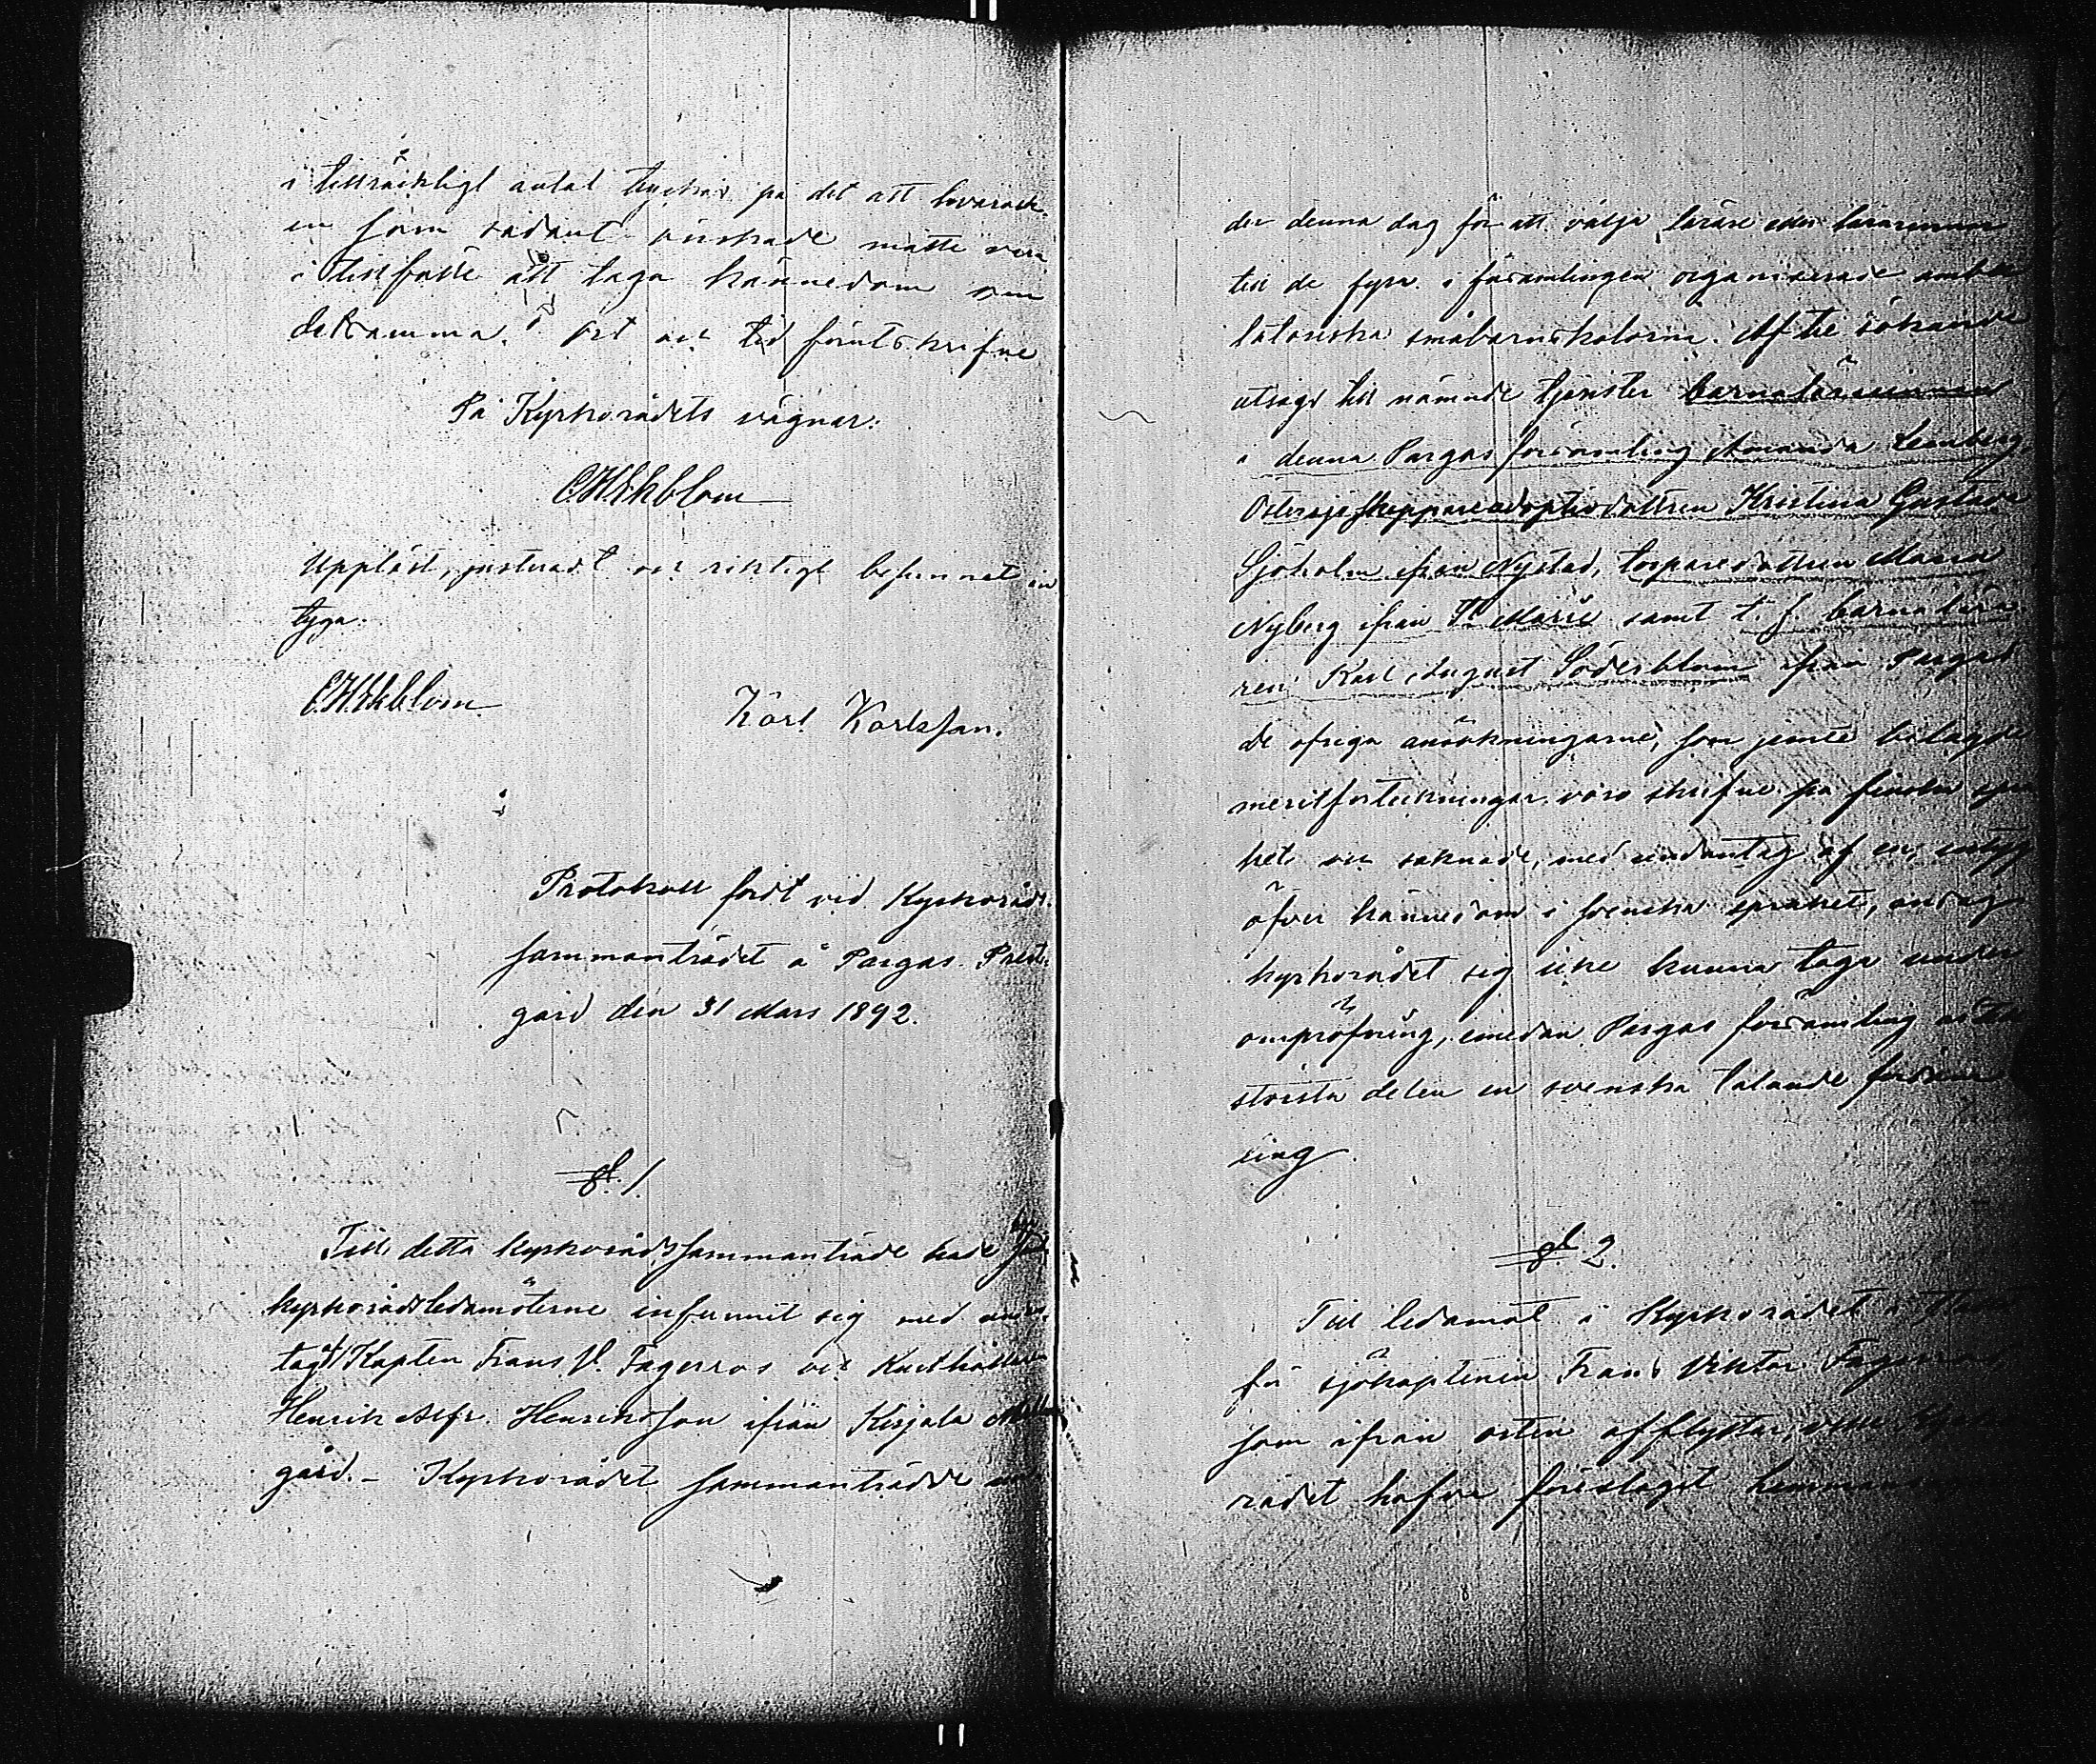 i tillräckligt antal tryckas på det att hvar och
en som sådant önskade måtte vara
i tillfälle att taga kännedom om
detsamma. Ort och tid förutskrifne
På Kyrkorådets vägnar:
C.H.Ekblom
Uppläst, justeradt och riktigt befunnet in
tyga.
C.H.Ekblom
Karl Karlsson.
Protokoll fördt vid Kyrkoråds
sammanträdet å Pargas Prest-
gård den 31 Mars 1892.
§ 1.
Till detta kyrkorådssammanträde hade
kyrkorådsledamöterne infunnit sig med undan
tag af Kapten Frans V. Fagerros och
Henrik Alfr. Henriksson ifrån Kirjala
gård. - Kyrkorådet sammanträdde
der denna dag för att välja lärare eller lärarinnor
till de fyra i församlingen organiserade ambu
latoriska småbarnskolorna. Af de sökande
utsågs till nämnde tjenster barnalärarinnan
i denna Pargas församling Amanda Lemberg,
Östersjöskeppareadoptivdottren Kristina Gustava
Sjöholm ifrån Nystad, torparedottren Maria
Nyberg ifrån St Marie samt t. f. barnalära
ren Karl August Söderblom ifrån Pargas
de öfriga ansökningarne, som jemte bilagde
meritförteckningar voro skrifne på finska språ
ket och saknade, med undantag af en, intyg
öfver kännedom i svenska språket, ansåg
kyrkorådet sig icke kunna taga under
ompröfning, emedan Pargas församling är till
största delen en svenska talande församl
ing.
§ 2.
Till ledamot i Kyrkorådet i stället
för sjökaptenen Frans Viktor Fagerros
som ifrån orten afflyttar,
rådet hafva föreslaget